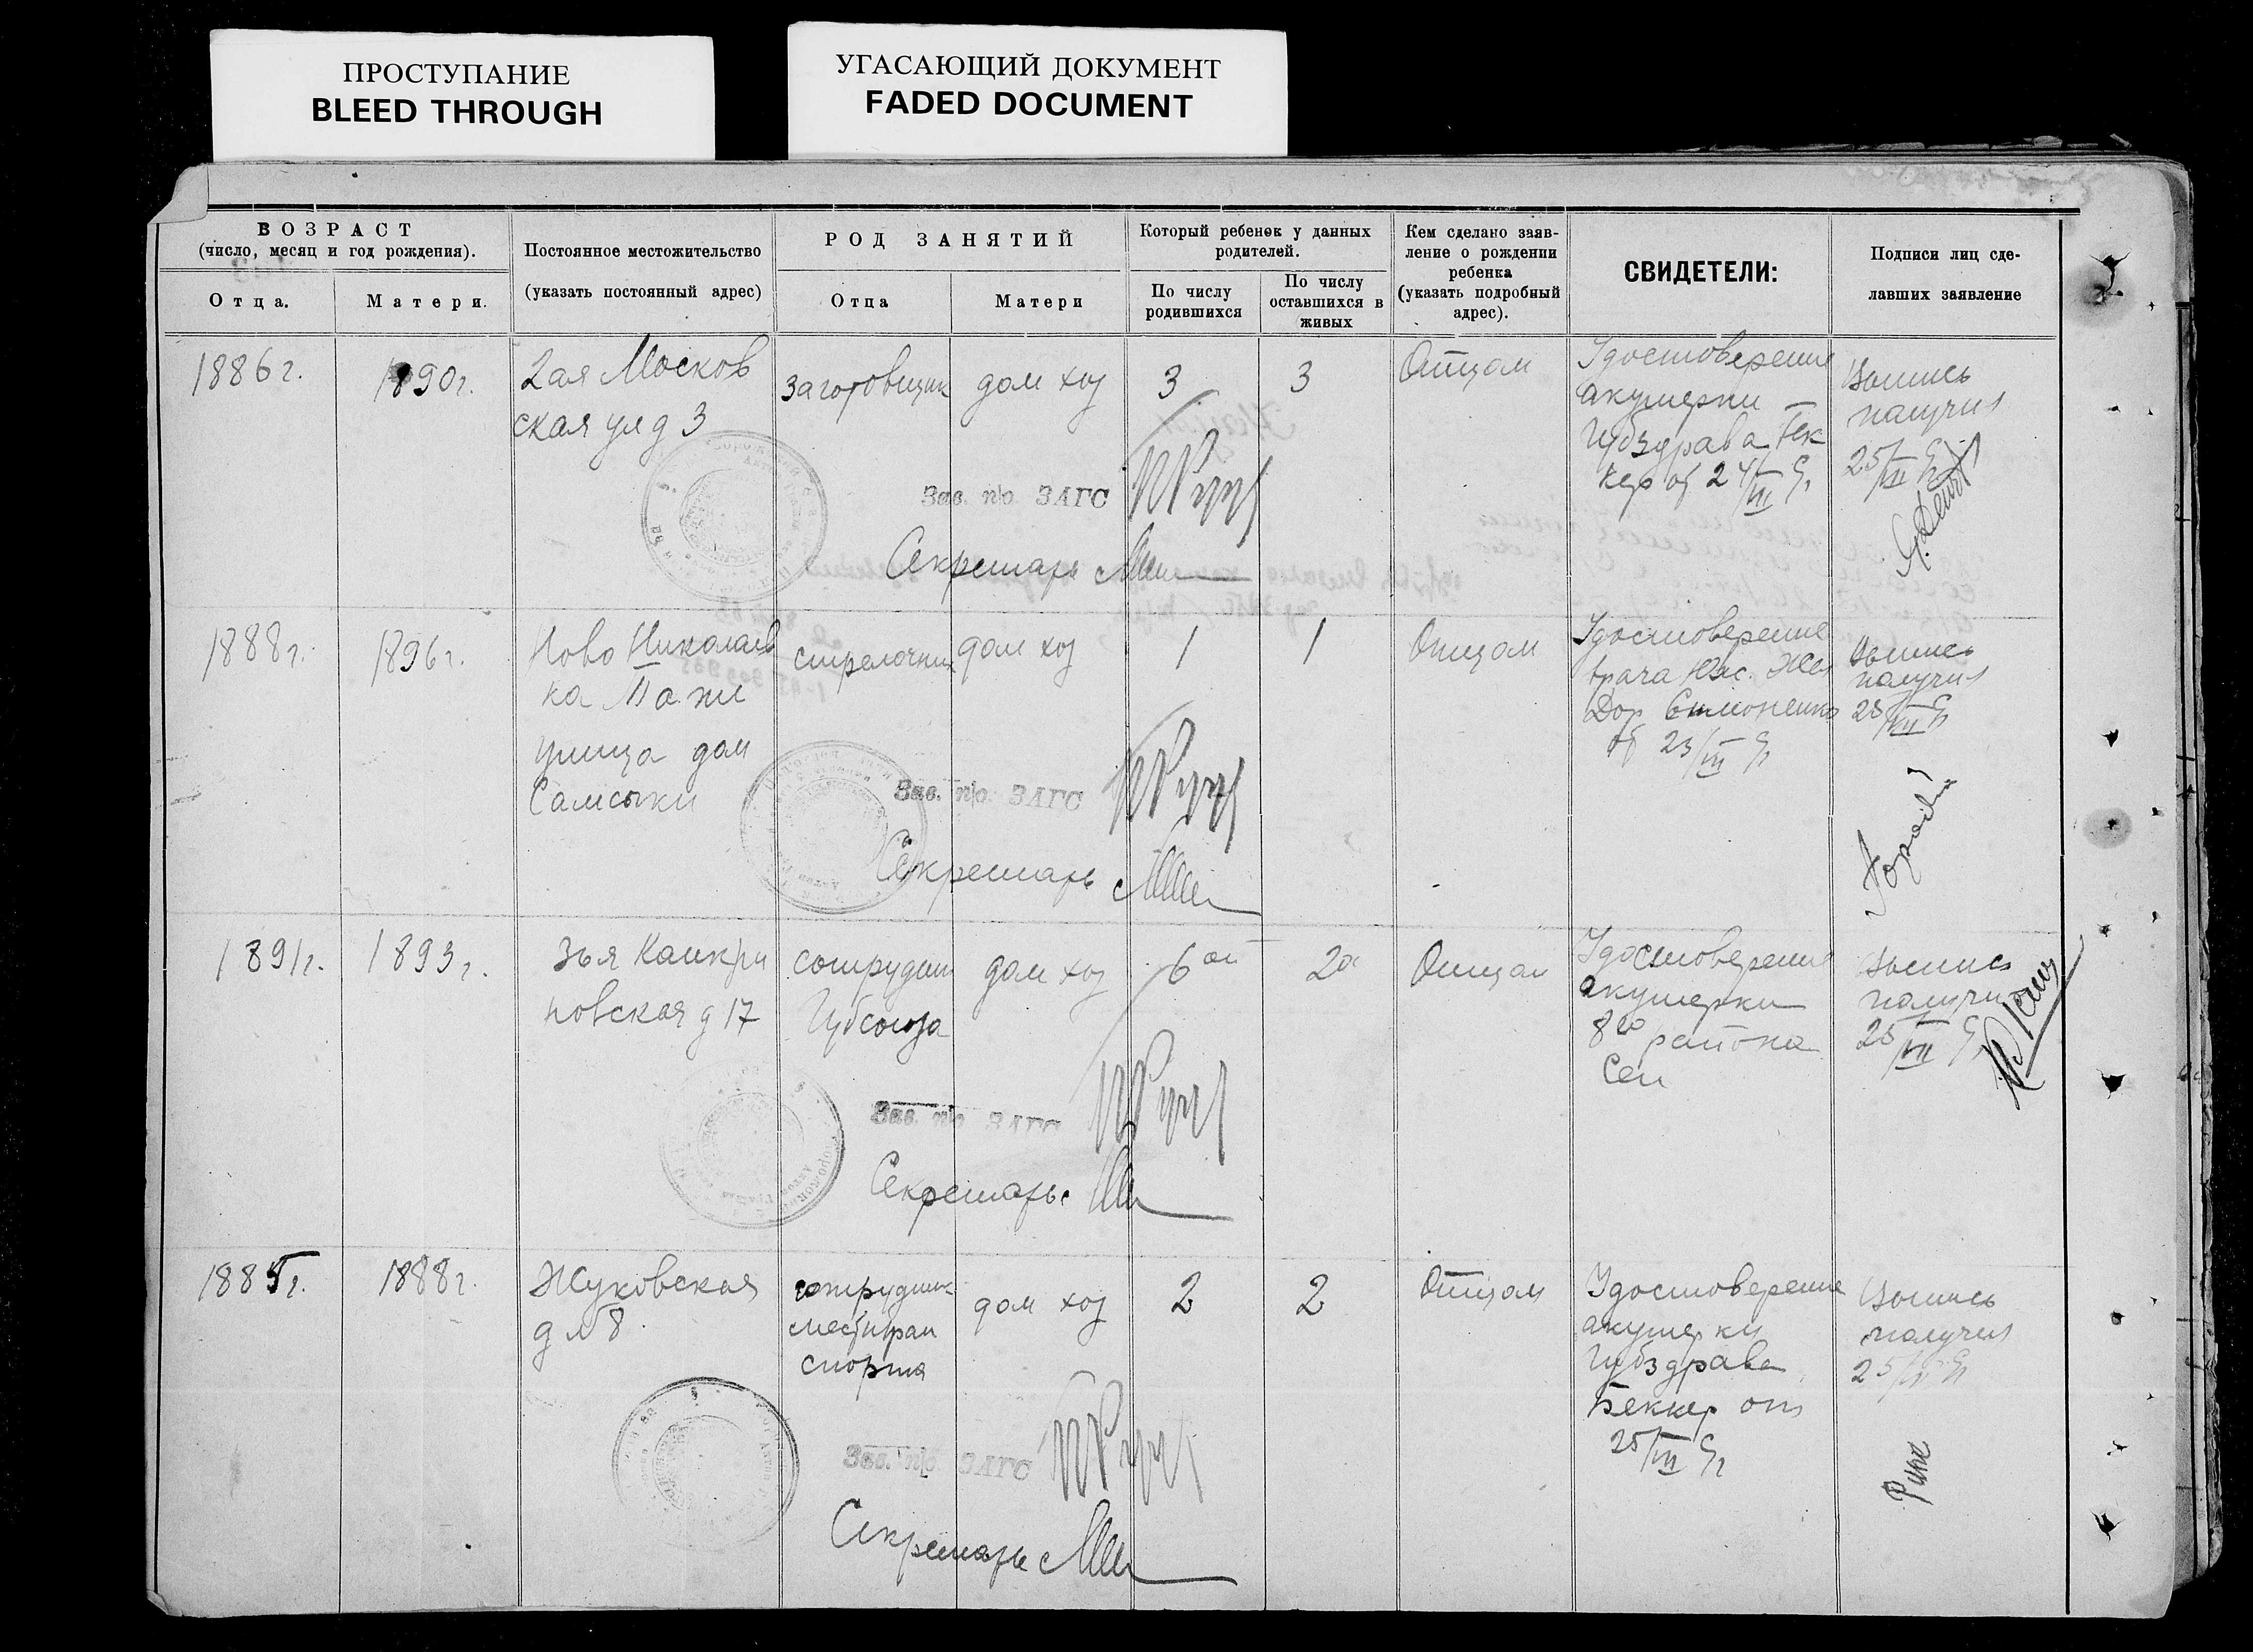 ПРОСТУПАНИЕ
BLEED THROUGH
УГАСАЮЩИЙ ДОКУМЕНТ
FADED DOCUMENT
ВОЗРАСТ
(число, месяц и год рождения).
Отца.
Матери.
Постоянное местожительство
(указать постоянный адрес)
РОД ЗАНЯТИЙ
Отца
Матери
Который ребенок у данных
родителей.
По числу
родившихся
По числу
оставшихся в
живых
Кем сделано заяв-
ление о рождении
ребенка
(указать подробный
адрес).
СВИДЕТЕЛИ:
Подписи лиц сде-
лавших заявление
1886г.
1890г.
2ая Москов
ская ул д 3
заготовщик
дом хоз
3
3
Отцом
Удостоверение
акушерки
Губздрава Бек
кер от 24/VII
Выпись
получил
25/VII
Зав. п/о. ЗАГС
Секретарь
1888г.
1896г.
Ново Николаев
ка
улица дом
стрелочник
дом хоз
1
1
Отцом
Удостоверение
врача Юж. Жел
Дор Симоненко
от 23/VII
Выпись
получил
25/VII
Зав. п/о. ЗАГС
Секретарь
1891г.
1893г.
3ья Канкри
новская д 17
сотрудник
Губсоюза
дом хоз
6ой
2й
Отцом
Удостоверение
акушерки
8го района
Выпись
получил
25/VII
Зав. п/о ЗАГС
Секретарь
1885г.
1888г.
Жуковская
д № 8
сотрудник
местран
спорта
дом хоз
2
2
Отцом
Удостоверение
акушерки
Губздрава
Беккер от
25/VII
Выпись
получил
25/VII
Зав. п/о. ЗАГС
Секретарь